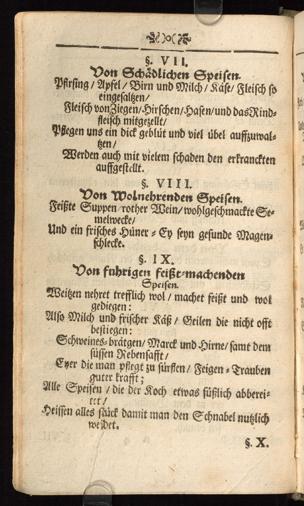 §. VII.
Von Schädlichen Speisen.
Pfirsing / Apfel / Birn und Milch / Käse / Fleisch so
eingesaltzen /
Fleisch von Ziegen / Hirschen / Hasen / und das Rind-
fleisch mitgezellt /
Pflegen uns ein dick geblüt und viel übel auffzuwal-
tzen /
Werden auch mit vielem schaden den erkranckten
auffgestellt.
§. VIII.
Von Wolnehrenden Speisen.
Feißte Suppen / rother Wein / wohlgeschmackte Se-
melwecke /
Und ein frisches Hüner-Ey seyn gesunde Magen-
schlecke.
§. IX.
Von fuhrigen feißt-machenden
Speisen.
Weitzen nehret trefflich wol / machet feißt und wol
gediegen:
Also Milch und frischer Käß / Geilen die nicht offt
bestiegen:
Schweines-brätgen / Marck und Hirne / samt dem
süssen Rebensafft /
Eyer die man pflegt zu sürfflen / Feigen-Trauben
guter krafft;
Alle Speisen / die der Koch etwas süßlich abberei-
tet /
Heissen alles stück damit man den Schnabel nutzlich
weidet.
§. X.